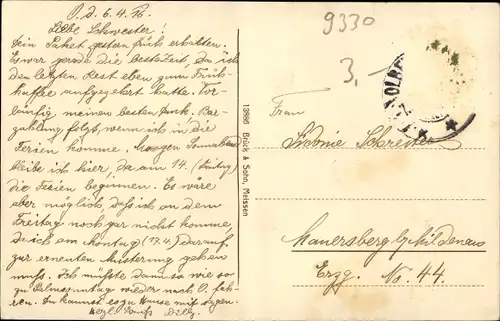 O. d. 6. 4. 16.
Liebe Schwester!
Dein Paket gestern früh erhalten.
Es war gerade die beste Zeit, da ich
den letzten Rest eben zum Früh-
kaffee aufgezehrt hatte. Vor-
läufig, meinen besten Dank, Bar-
zahlung folgt, wenn ich in die
Ferien komme. Morgen Sonnabend
bleibe ich hier, da am 14. (Freitag)
die Ferien beginnen. Es wäre
aber möglich, daß ich an dem
Freitag noch gar nicht komme,
da ich am Montag (17.4.) darauf
zur erneuten Musterung gehen
muß. Ich müßte dann so wie so
zu Palmsonntag wieder nach O. fah-
ren. Du kannst es zu Hause mit sagen.
Herzl. Gruß
13886 Brück & Sohn, Meissen
9330
3,-
Frau
Sidonie Schreiter
Mauersberg b/ Mildenau
Erzg. No. 44.